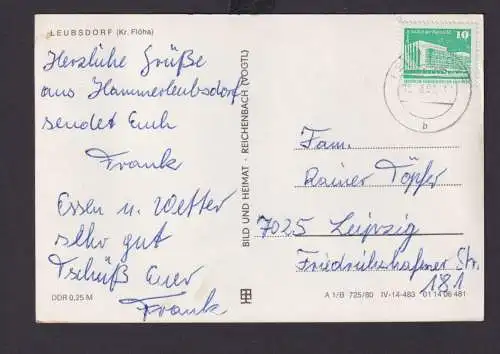 LEUBSDORF (Kr. Flöha)
Herzliche Grüße
aus Hammerleubsdorf
sendet Euch
Frank
Essen u. Wetter
sehr gut
Tschüß Euer
Frank
DDR 0,25 M
BILD UND HEIMAT · REICHENBACH (VOGTL)
10
b
Fam.
Rainer Töpfer
7025 Leipzig
Friedrichshafner Str.
181
A 1/B 725/80 IV-14-483 01 14 06 481